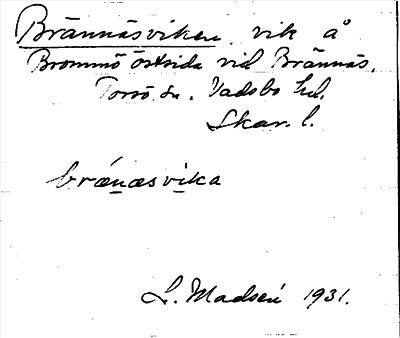 Brännäsviken vik å
Brommö östsida vid Brännäs,
Torsö sn. Vadsbo hd.
Skar. l.
brǽn̲æsvi̲ka
L. Madsén 1931.